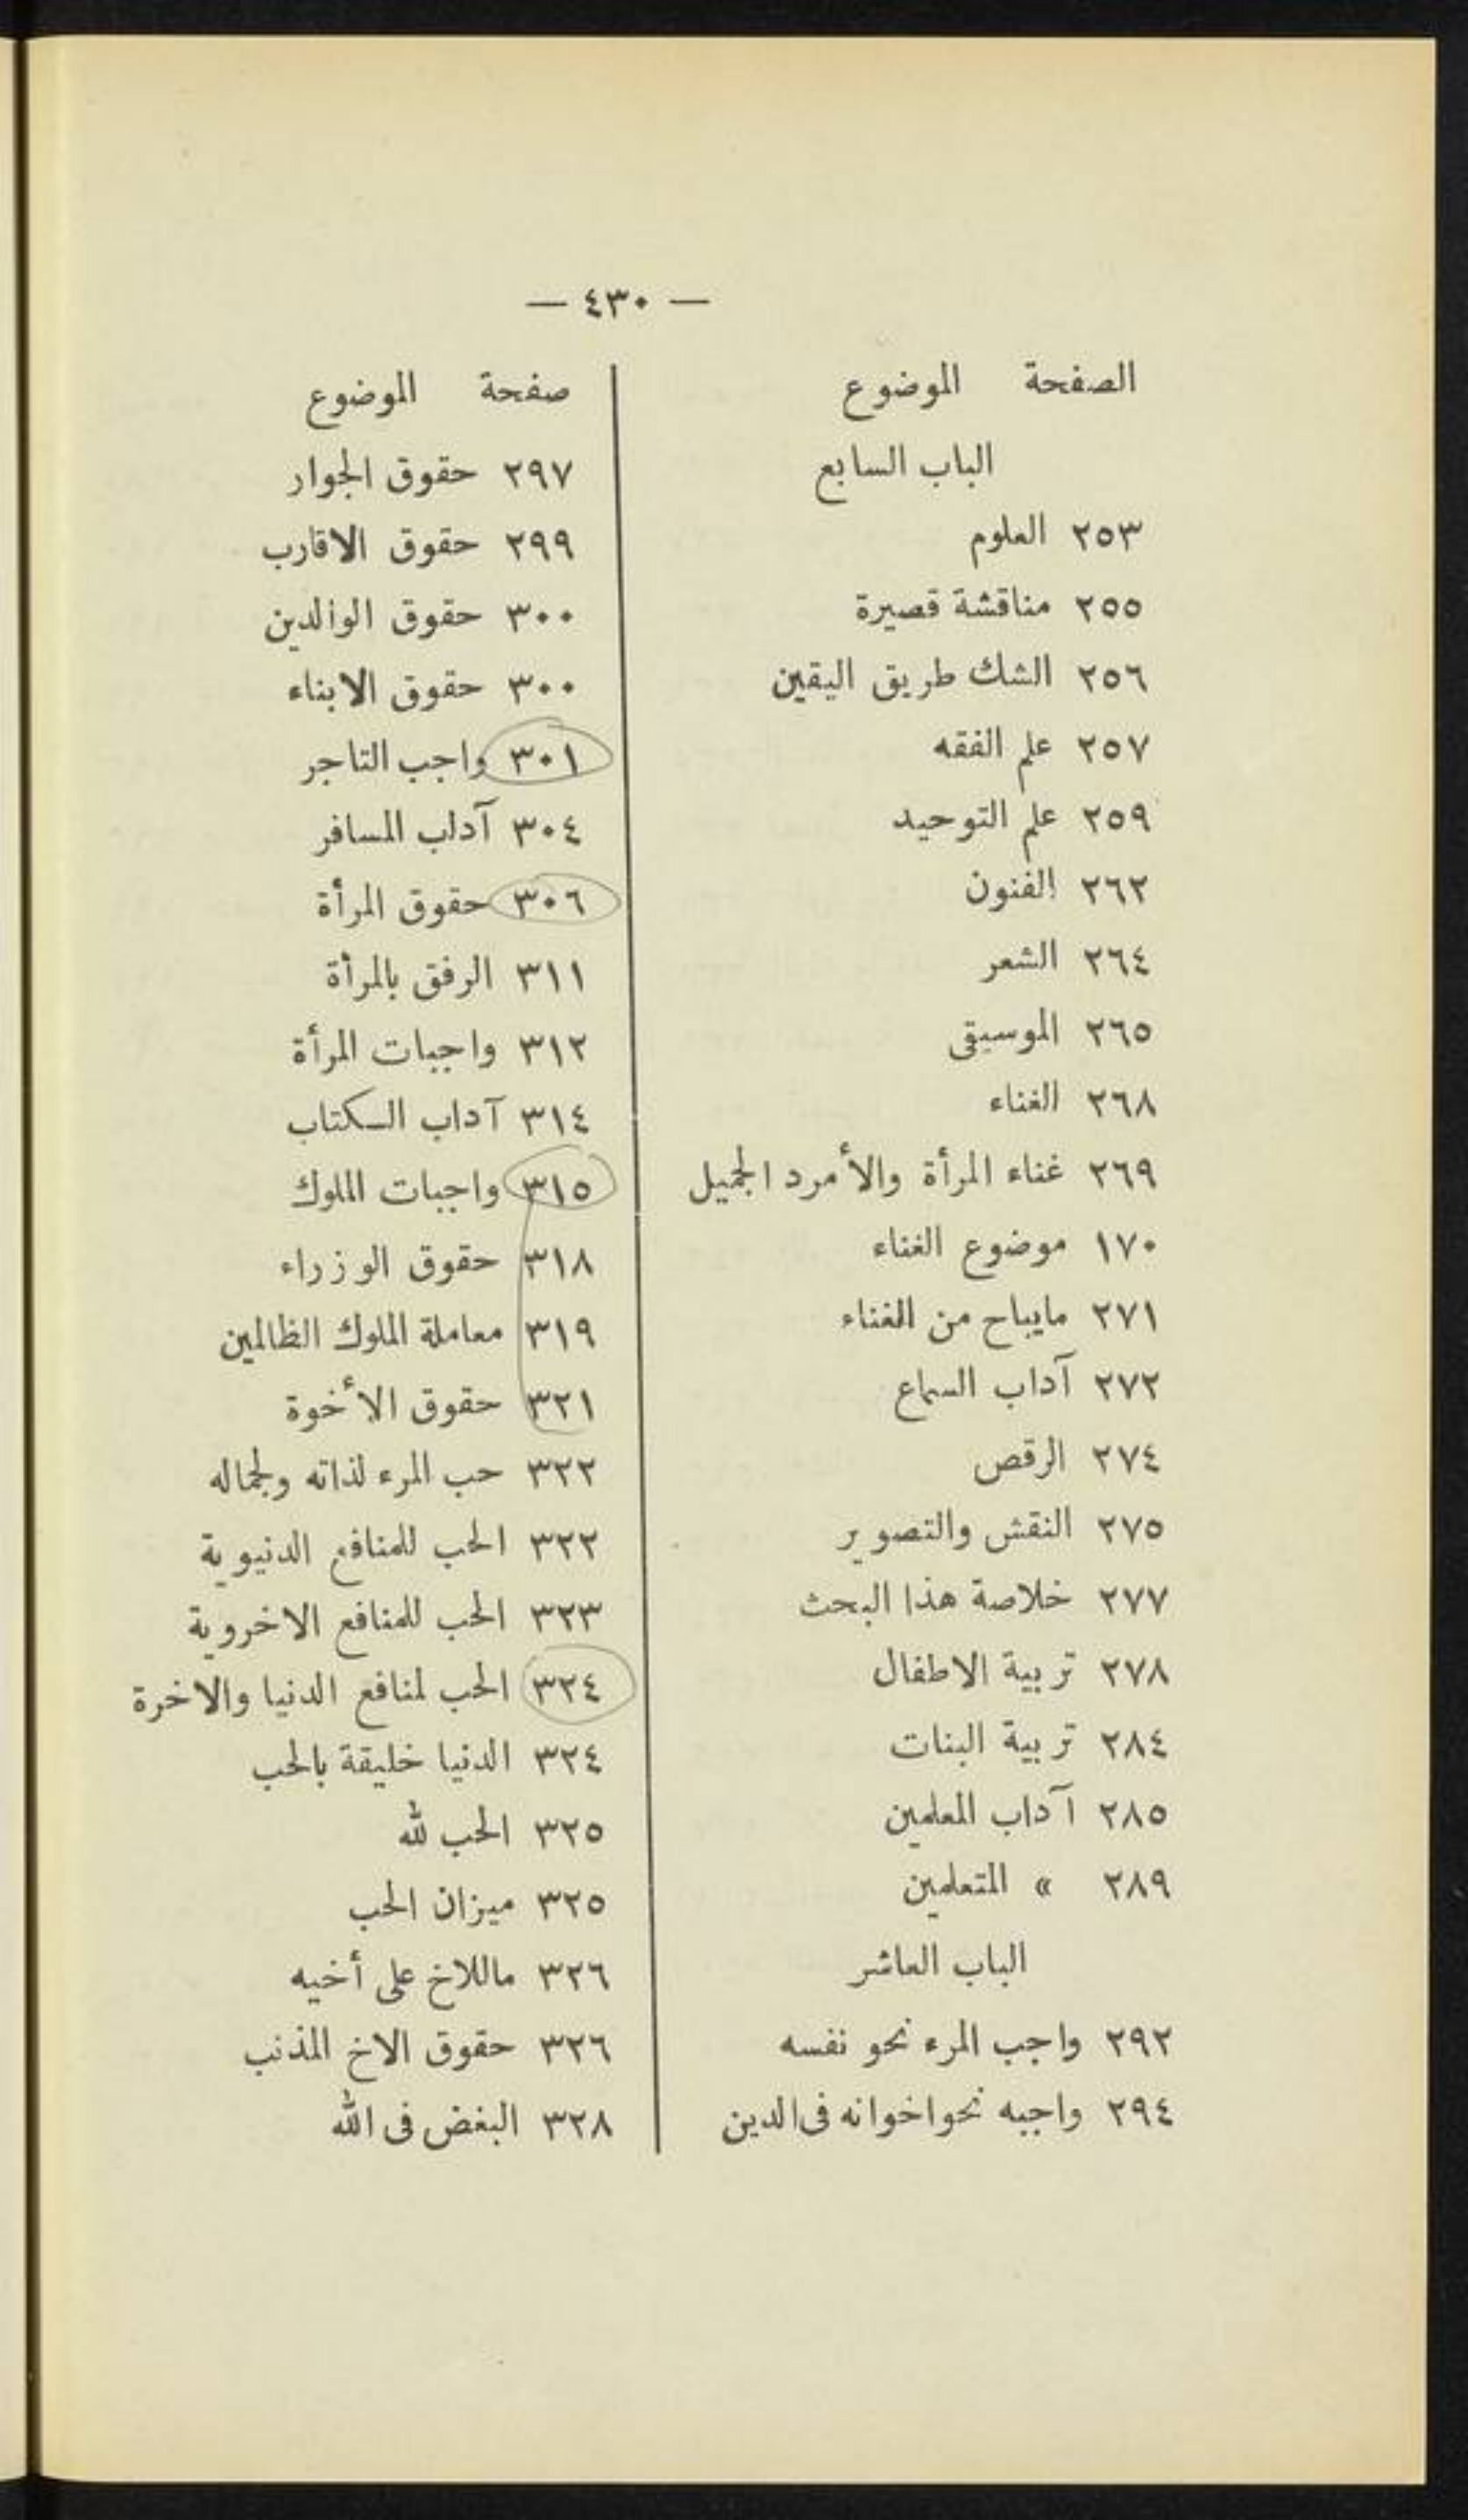 — ٤٣٠ —
الصفحة الموضوع
الباب السابع
٢٥٣ العلوم
٢٥٥ مناقشة قصيرة
٢٥٦ الشك طريق اليقين
٢٥٧ علم الفقه
٢٥٩ علم التوحيد
٢٦٢ الفنون
٢٦٤ الشعر
٢٦٥ الموسيقى
٢٦٨ الغناء
٢٦٩ غناء المرأة والأمرد الجميل
١٧٠ موضوع الغناء
٢٧١ مايباح من الغناء
٢٧٢ آداب السماع
٢٧٤ الرقص
٢٧٥ النقش والتصوير
٢٧٧ خلاصة هذا البحث
٢٧٨ تربية الاطفال
٢٨٤ تربية البنات
٢٨٥ آداب المعلمين
٢٨٩ » المتعلمين
الباب العاشر
٢٩٢ واجب المرء نحو نفسه
٢٩٤ واجبه نحو اخوانه فى الدين
صفحة الموضوع
٢٩٧ حقوق الجوار
٢٩٩ حقوق الاقارب
٣٠٠ حقوق الوالدين
٣٠٠ حقوق الابناء
٣٠١ واجب التاجر
٣٠٤ آداب المسافر
٣٠٦ حقوق المرأة
٣١١ الرفق بالمرأة
٣١٢ واجبات المرأة
٣١٤ آداب الكتاب
٣١٥ واجبات الملوك
٣١٨ حقوق الوزراء
٣١٩ معاملة الملوك الظالمين
٣٢١ حقوق الأخوة
٣٢٢ حب المرء لذاته ولجماله
٣٢٢ الحب للمنافع الدنيوية
٣٢٣ الحب للمنافع الاخروية
٣٢٤ الحب لمنافع الدنيا والاخرة
٣٢٤ الدنيا خليقة بالحب
٣٢٥ الحب لله
٣٢٥ ميزان الحب
٣٢٦ ماللاخ على أخيه
٣٢٦ حقوق الاخ المذنب
٣٢٨ البغض فى الله